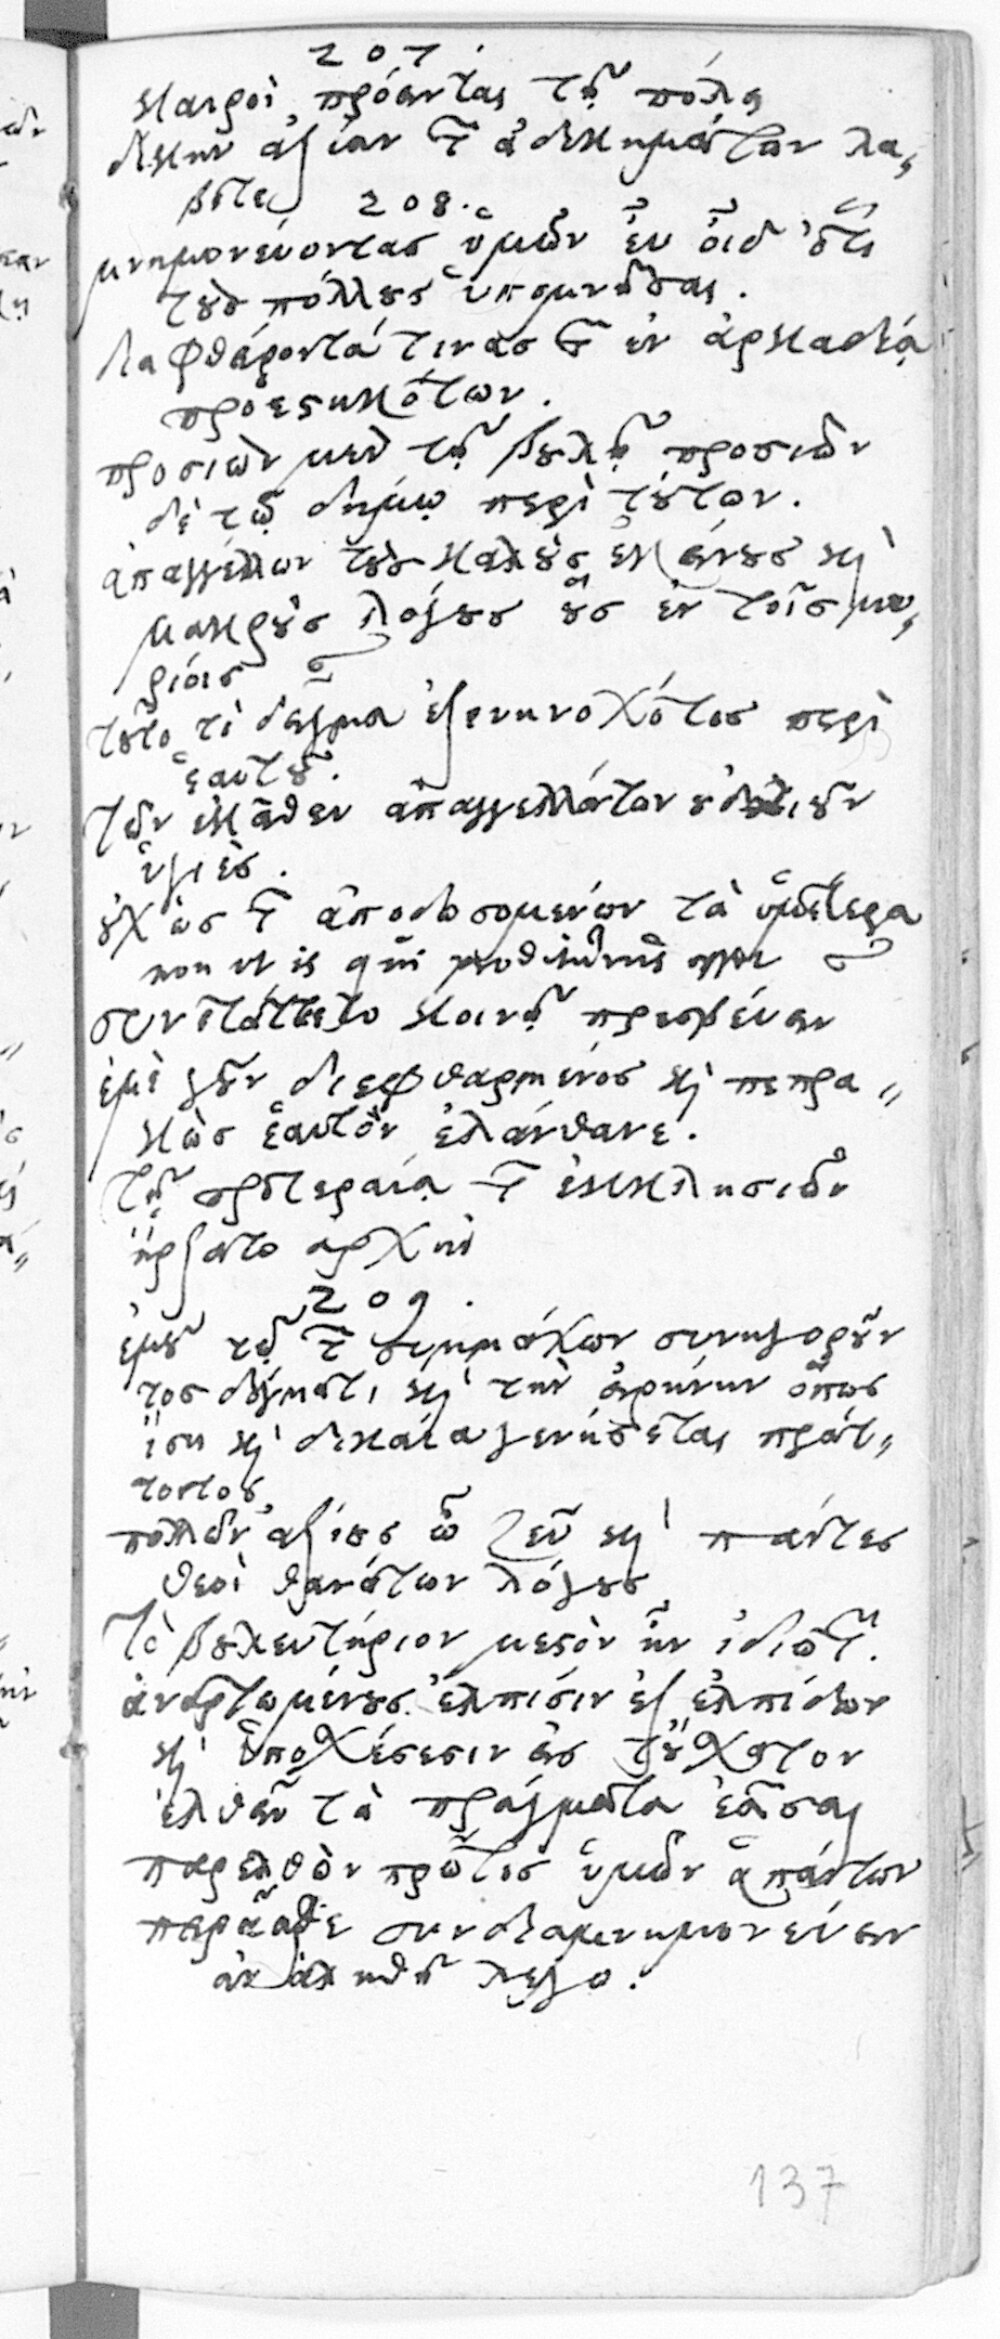 207.
καιροὶ πρόεινται τῇ πόλει
δίκην ἀξίαν τῶν ἀδικημάτων λα„
βῆτε 208.
μνημονεύοντας ὑμῶν εὖ οἶδ' ὅτι
τοὺς πολλοὺς ὑπομνῆσαι.
διαφθείροντά τινας τῶν ἐν ἀρκαδίᾳ
προεστηκότων.
προσιὼν μὲν τῇ βουλῇ προσιὼν
δὲ τῷ δήμῳ περὶ τούτων.
ἀπαγγέλλων τοὺς καλοὺς ἐκείνους καὶ
μακροὺς λόγους οὓς ἐν τοῖς μυ„
ρίοις
τοῦτο τὸ δεῖγμα ἐξενηνοχότος περὶ
ἑαυτοῦ.
τῶν ἐκεῖθεν ἀπαγγελλόντων οὐδοτιοῦν
ὑγιὲς.
οὐχ ὡς τῶν ἀποδωσομένων τὰ ὑμέτερα
non ut is qui
συνετάττετο κοινῇ πρεσβεύειν
ἐμὲ γοῦν διεφθαρμένος καὶ πεπρα„
κὼς ἑαυτὸν ἐλάνθανε.
τῇ προτεραίᾳ τῶν ἐκκλησιῶν
ἤρξατο ἀρχὴν
209.
ἐμοῦ τῷ τῶν συμμάχων συνηγοροῦν
τος δόγματι καὶ τὴν εἰρήνην ὅπως
ἴση καὶ δικαία γενήσεται πράτ„
τοντος
πολλῶν ἀξίους ὦ ζεῦ καὶ πάντες
θεοὶ θανάτων λόγους
Τὸ βουλευτήριον μεστὸν ἦν ἰδιωτῶν.
ἀναρτωμένους ἐλπίσιν ἐξ ἐλπίδων
καὶ ὑποσχέσεσιν εἰς τοὔσχατον
ἐλθεῖν τὰ πράγματα ἐᾶσαι
παρελθὼν πρῶτος ὑμῶν ἁπάντων
πειρᾶσθε συνδιαμνημονεύειν
ἂν ἀληθῆ λέγω.
137